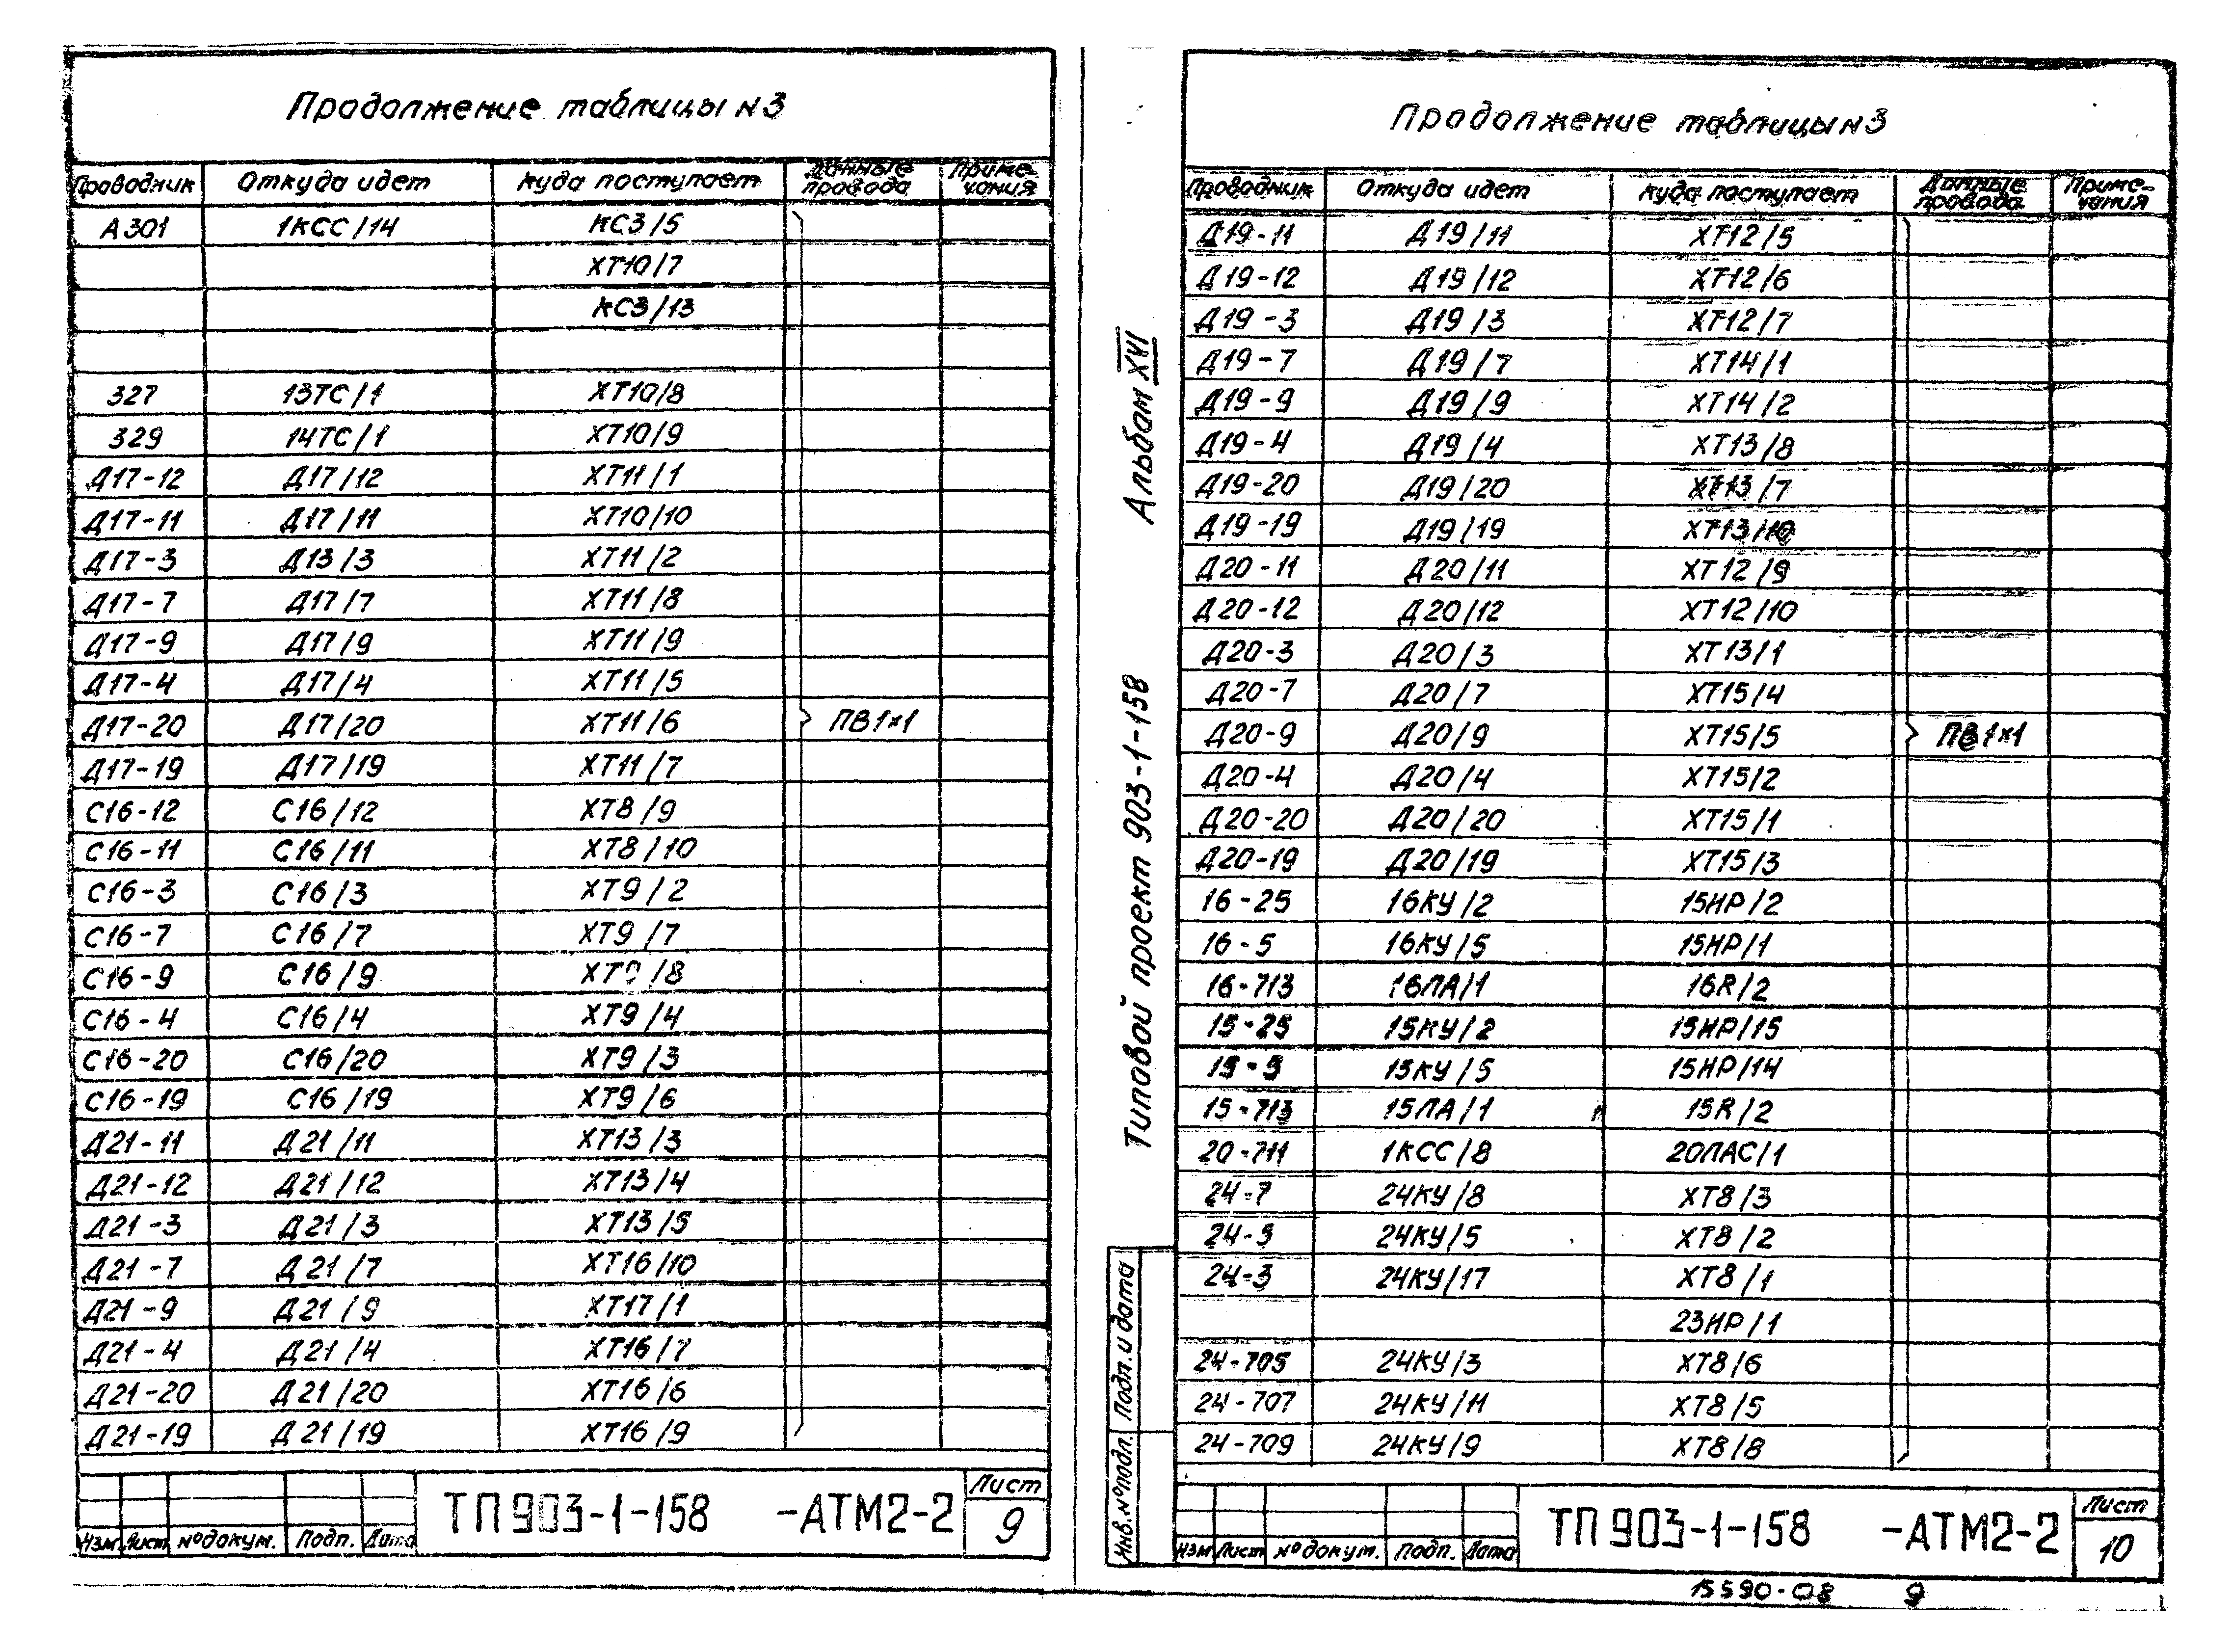 Продолжение таблицы N3
Проводник Откуда идет Куда поступает Данные провода Примечания
А301 1КСС/14 КС3/5
ХТ10/7
КС3/13
327 13ТС/1 ХТ10/8
329 14ТС/1 ХТ10/9
Д17-12 Д17/12 ХТ11/1
Д17-11 Д17/11 ХТ10/10
Д17-3 Д13/3 ХТ11/2
Д17-7 Д17/7 ХТ11/8
Д17-9 Д17/9 ХТ11/9
Д17-4 Д17/4 ХТ11/5
Д17-20 Д17/20 ХТ11/6 ПВ1×1
Д17-19 Д17/19 ХТ11/7
С16-12 С16/12 ХТ8/9
С16-11 С16/11 ХТ8/10
С16-3 С16/3 ХТ9/2
С16-7 С16/7 ХТ9/7
С16-9 С16/9 ХТ9/8
С16-4 С16/4 ХТ9/4
С16-20 С16/20 ХТ9/3
С16-19 С16/19 ХТ9/6
Д21-11 Д21/11 ХТ13/3
Д21-12 Д21/12 ХТ13/4
Д21-3 Д21/3 ХТ13/5
Д21-7 Д21/7 ХТ16/10
Д21-9 Д21/9 ХТ17/1
Д21-4 Д21/4 ХТ16/7
Д21-20 Д21/20 ХТ16/6
Д21-19 Д21/19 ХТ16/9
Изм Лист № докум. Подп. Дата
ТП 903-1-158 -АТМ2-2
Лист
9
Альбом XVI
Типовой проект 903-1-158
Подп. и дата
Инв. № подл.
Продолжение таблицы N3
Проводник Откуда идет Куда поступает Данные провода Примечания
Д19-11 Д19/11 ХТ12/5
Д19-12 Д19/12 ХТ12/6
Д19-3 Д19/3 ХТ12/7
Д19-7 Д19/7 ХТ14/1
Д19-9 Д19/9 ХТ14/2
Д19-4 Д19/4 ХТ13/8
Д19-20 Д19/20 ХТ13/7
Д19-19 Д19/19 ХТ13/10
Д20-11 Д20/11 ХТ12/9
Д20-12 Д20/12 ХТ12/10
Д20-3 Д20/3 ХТ13/1
Д20-7 Д20/7 ХТ15/4
Д20-9 Д20/9 ХТ15/5 ПВ1×1
Д20-4 Д20/4 ХТ15/2
Д20-20 Д20/20 ХТ15/1
Д20-19 Д20/19 ХТ15/3
16-25 16КУ/2 15НР/2
16-5 16КУ/5 15НР/1
16-713 16ЛА/1 16R/2
15-25 15КУ/2 15НР/15
15-5 15КУ/5 15НР/14
15-713 15ЛА/1 15R/2
20-711 1КСС/8 20ЛАС/1
24-7 24КУ/8 ХТ8/3
24-5 24КУ/5 ХТ8/2
24-3 24КУ/17 ХТ8/1
23НР/1
24-705 24КУ/3 ХТ8/6
24-707 24КУ/11 ХТ8/5
24-709 24КУ/9 ХТ8/8
Изм Лист № докум. Подп. Дата
ТП 903-1-158 -АТМ2-2
Лист
10
15590-08 9